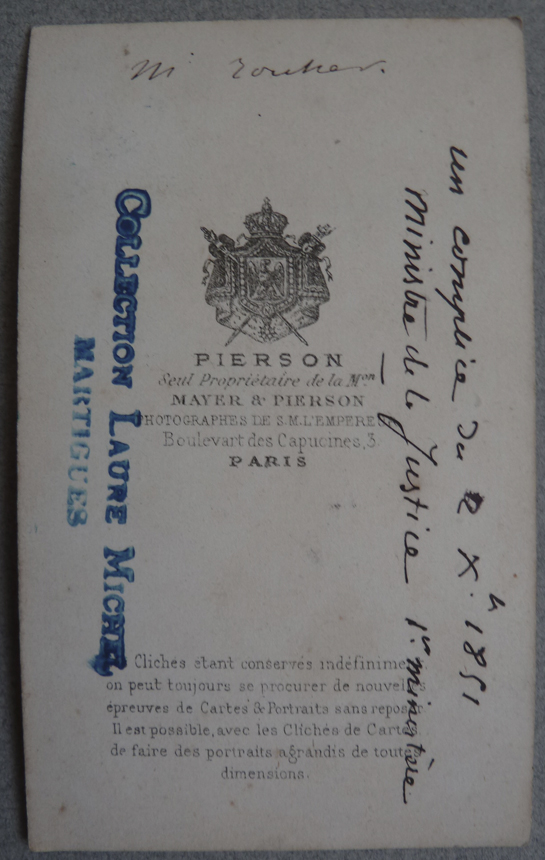 M Rouher.
PIERSON
Seul Propriétaire de la Mon
MAYER & PIERSON
PHOTOGRAPHES DE S.M. L'EMPERE
Boulevart des Capucines, 3
PARIS
Clichés étant conservés indéfinime
on peut toujours se procurer de nouvelles
épreuves de Cartes & Portraits sans reposer
Il est possible, avec les Clichés de Cartes
de faire des portraits agrandis de toutes
dimensions.
un complice du 2 Xbre 1851
Ministre de la Justice 1er ministère
COLLECTION LAURE MICHEL
MARTIGUES